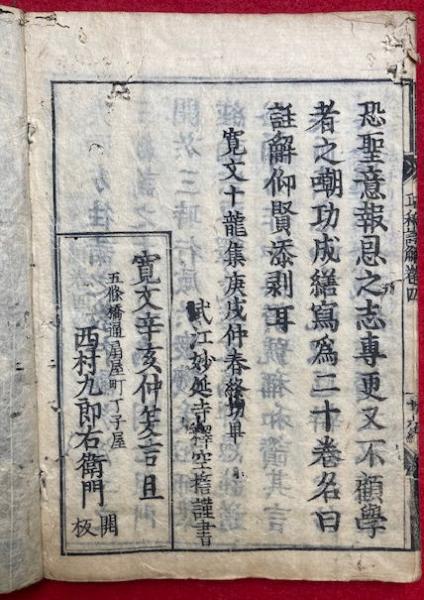 恐聖意報恩之志専更又不顧學
者之嘲功成繕寫為二十巻名曰
註解仰賢添剥耳
寛文十龍集庚戌仲春終功畢
武江妙延寺釋空誓謹書
寛文辛亥仲冬吉旦
五條橋通扇屋町丁子屋
西村九郎右衛門
開板